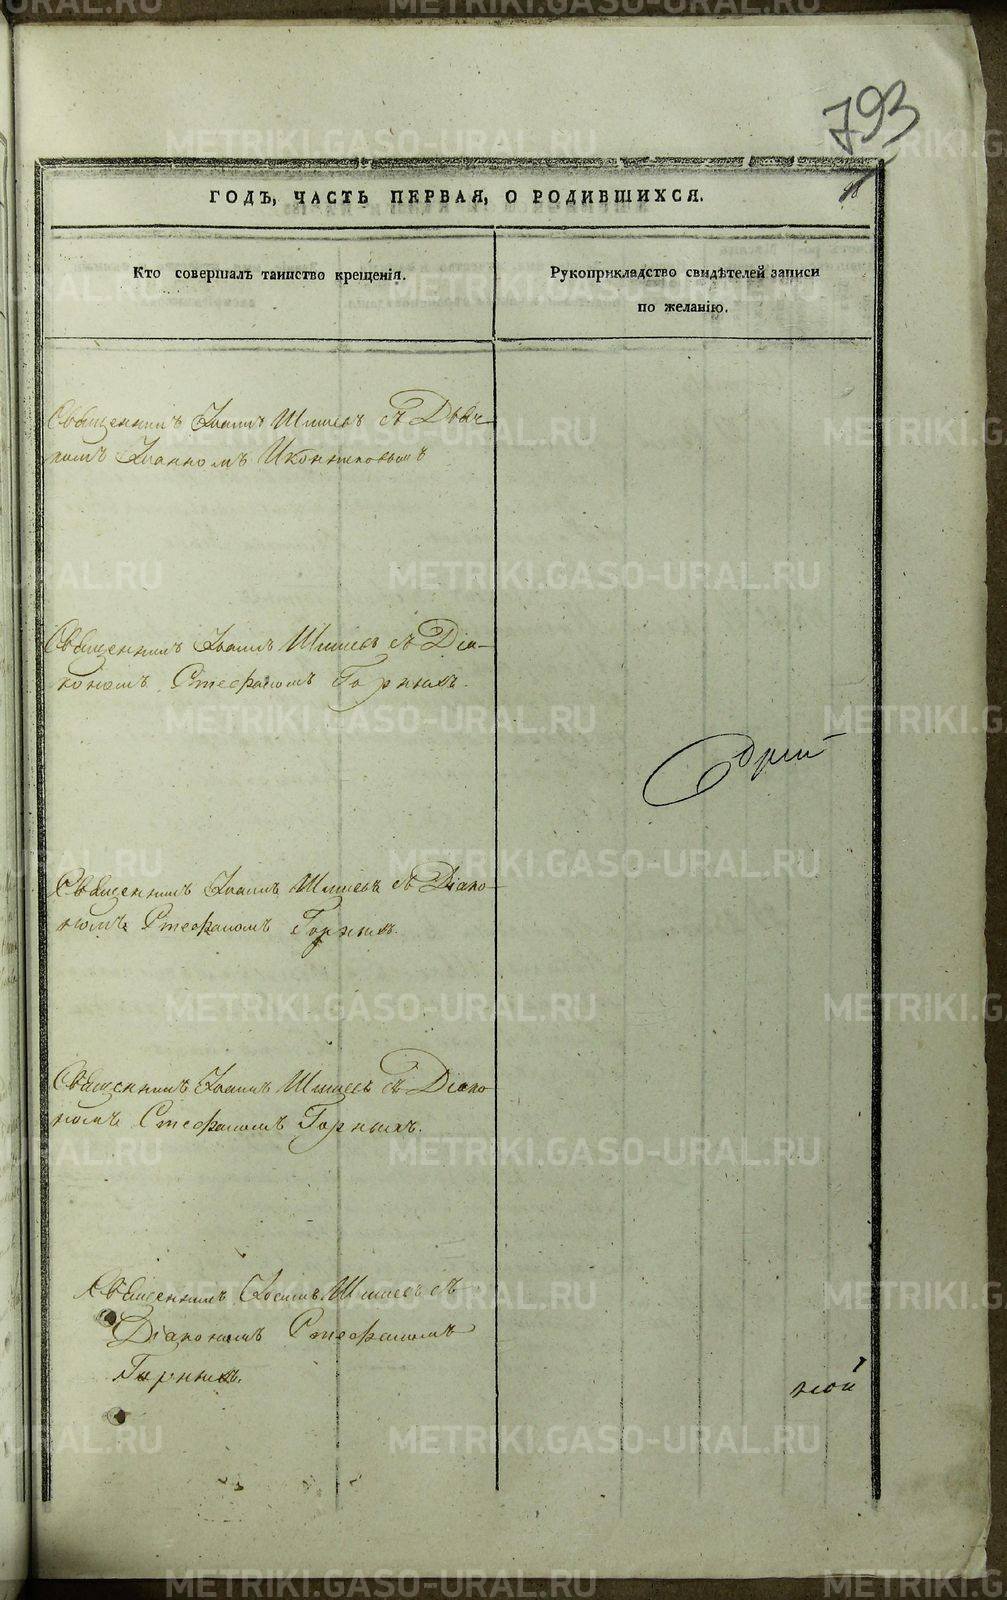 793
ГОДЪ, ЧАСТЬ ПЕРВАЯ, О РОДИВШИХСЯ.
Кто совершалъ таинство крещенія.
Рукоприкладство свидѣтелей записи
по желанію.
Священникъ Іоаннъ Шишевъ съ Дьяч-
комъ Іоанномъ Иконниковымъ
Священникъ Іоаннъ Шишевъ съ Діа-
кономъ Стефаномъ Горныхъ.
Священникъ Іоаннъ Шишевъ съ Діако-
номъ Стефаномъ Горныхъ.
Священникъ Іоаннъ Шишевъ съ Діако
номъ Стефаномъ Горныхъ.
Священникъ Іоаннъ Шишевъ съ
Діакономъ Стефаномъ
Горныхъ.
METRIKI.GASO-URAL.RU